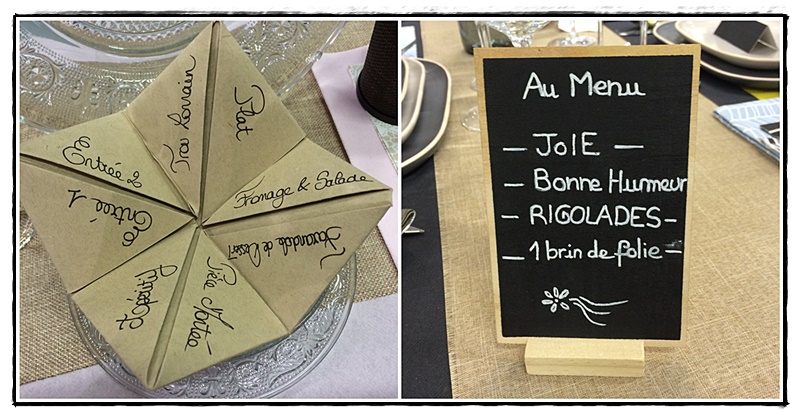 Apéritif
Entrée 1
Entrée 2
Trou Lorrain
Plat
Fromage & Salade
Farandole de Dessert
Pièce Montée
Au Menu
— JOIE —
— Bonne Humeur
— RIGOLADES —
— 1 brin de folie —